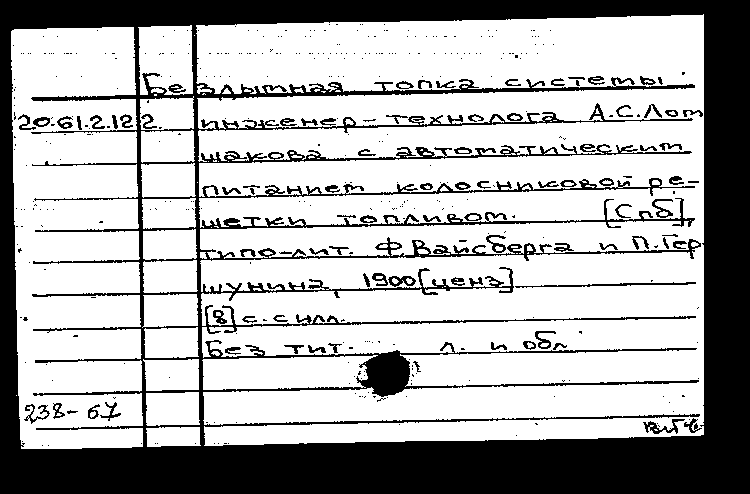 Бездымная топка системы
20.61.2.122. инженер-технолога А.С.Лом
шакова с автоматическим
питанием колосниковой ре-
шетки топливом. [Спб],
типо-лит. Ф.Вайсберга и П.Гер
шунина, 1900[ценз]
[8] с. с илл.
Без тит. л. и обл.
238-67